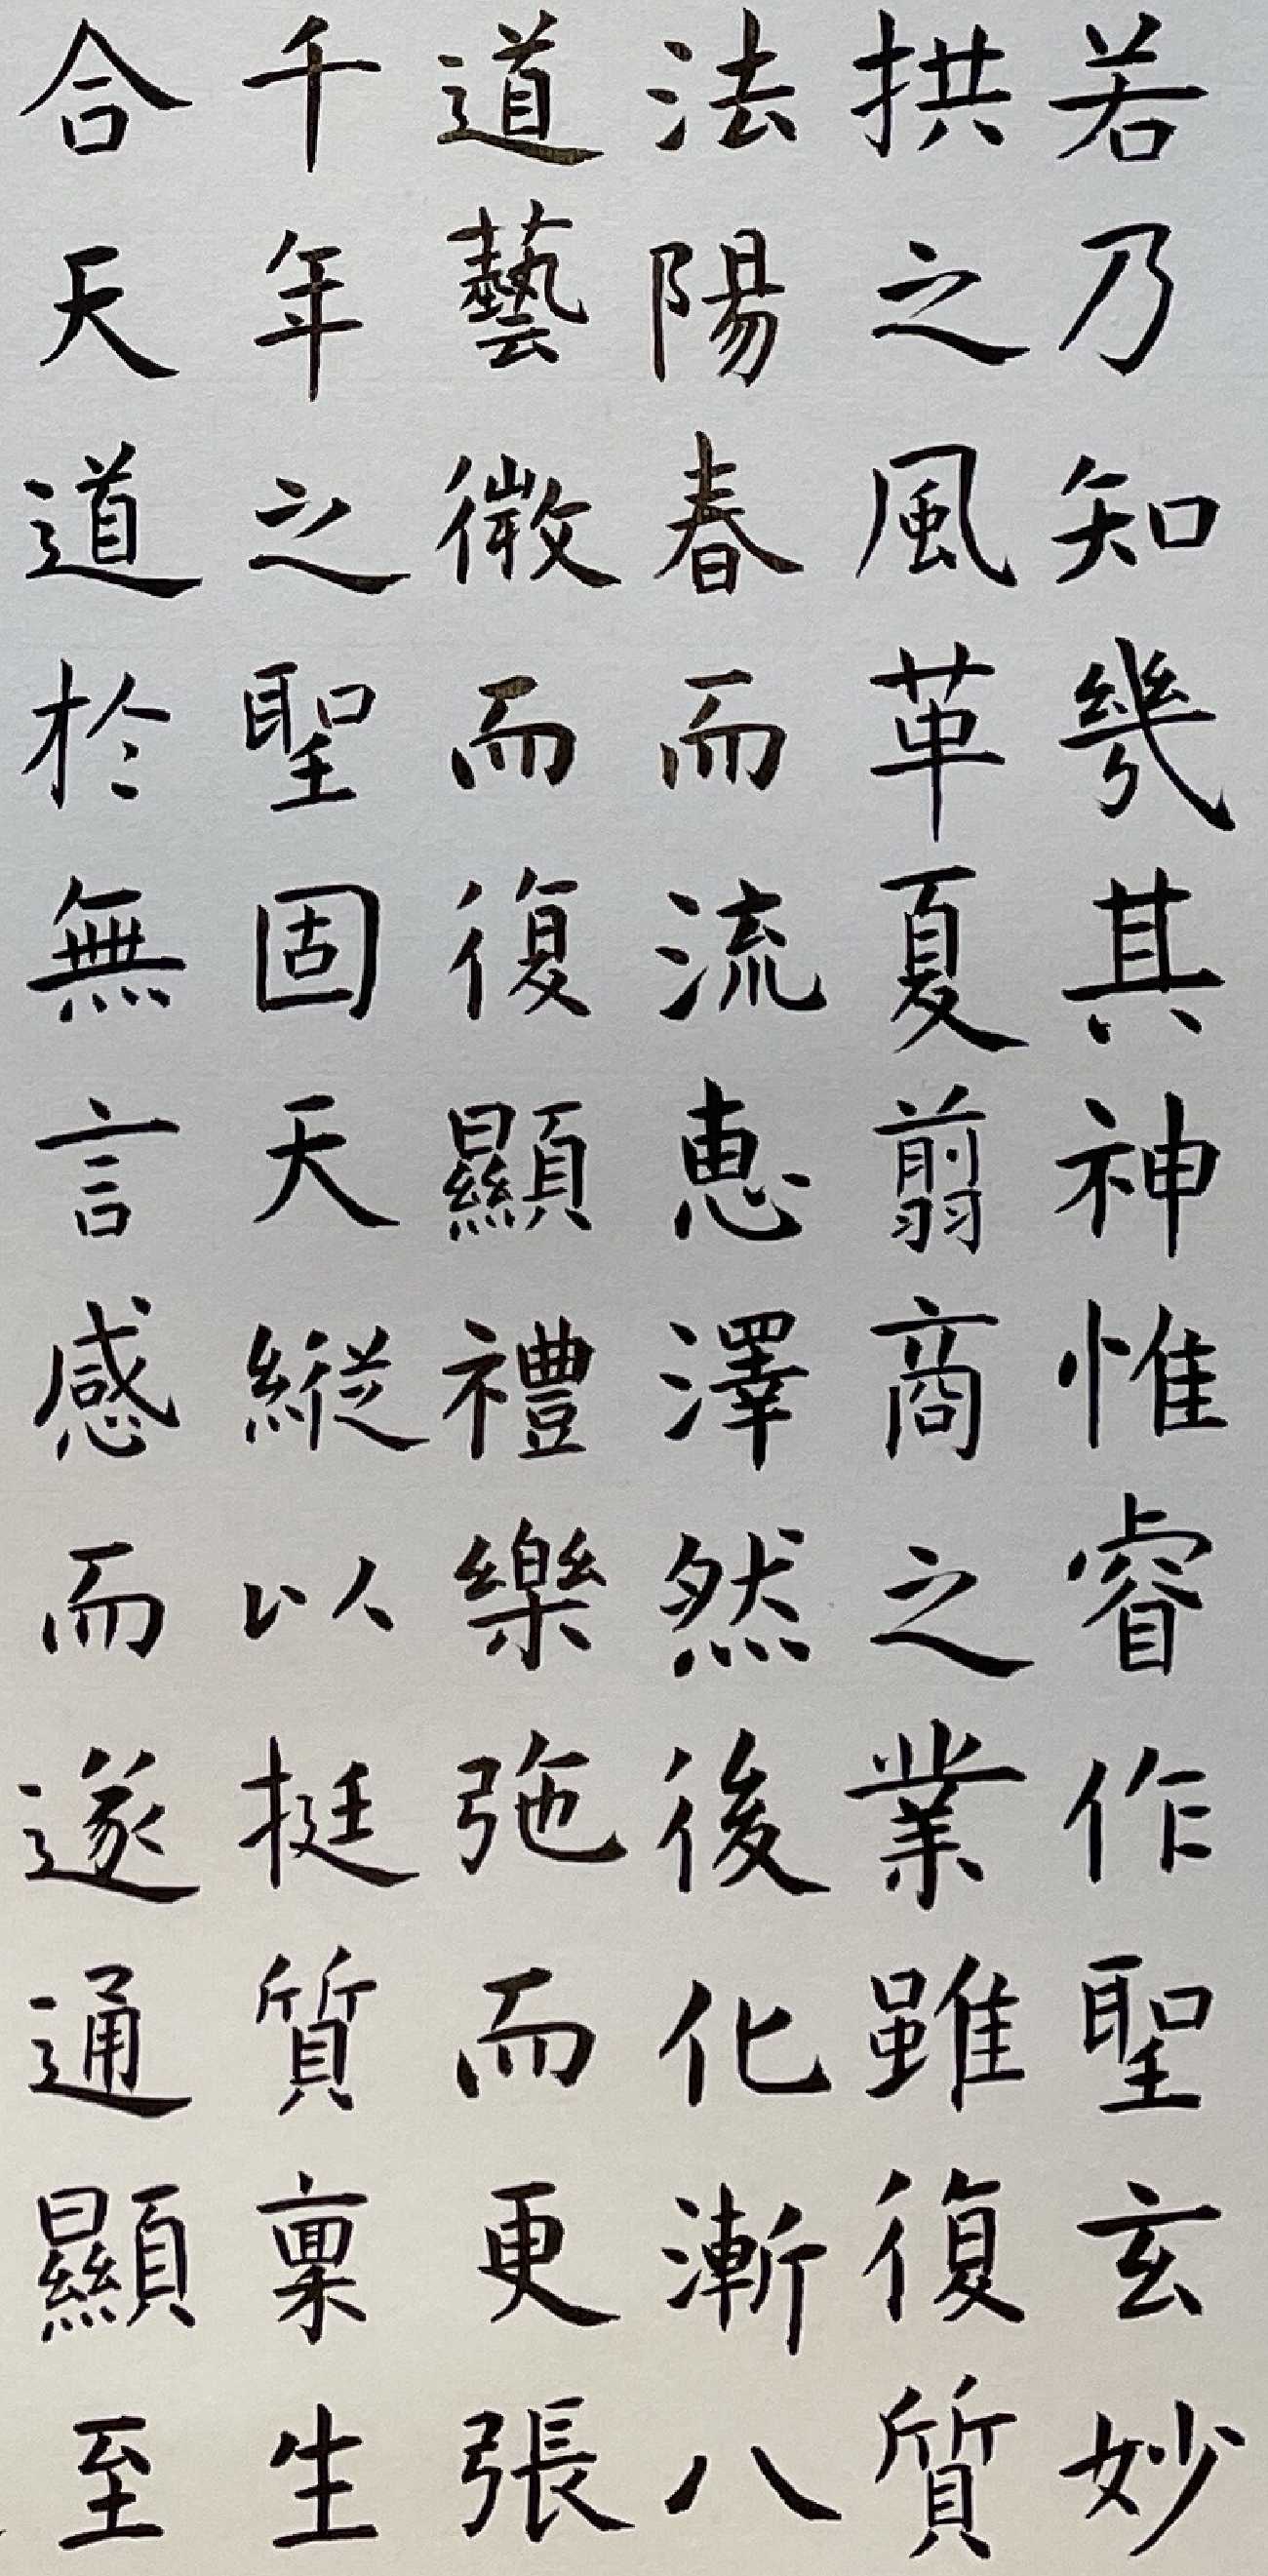 若乃知幾其神惟睿作聖玄妙
拱之風革夏翦商之業雖復質
法陽春而流恵澤然後化漸八
道藝微而復顯禮樂弛而更張
千年之聖固天縦以挺質稟生
合天道於無言感而遂通顯至